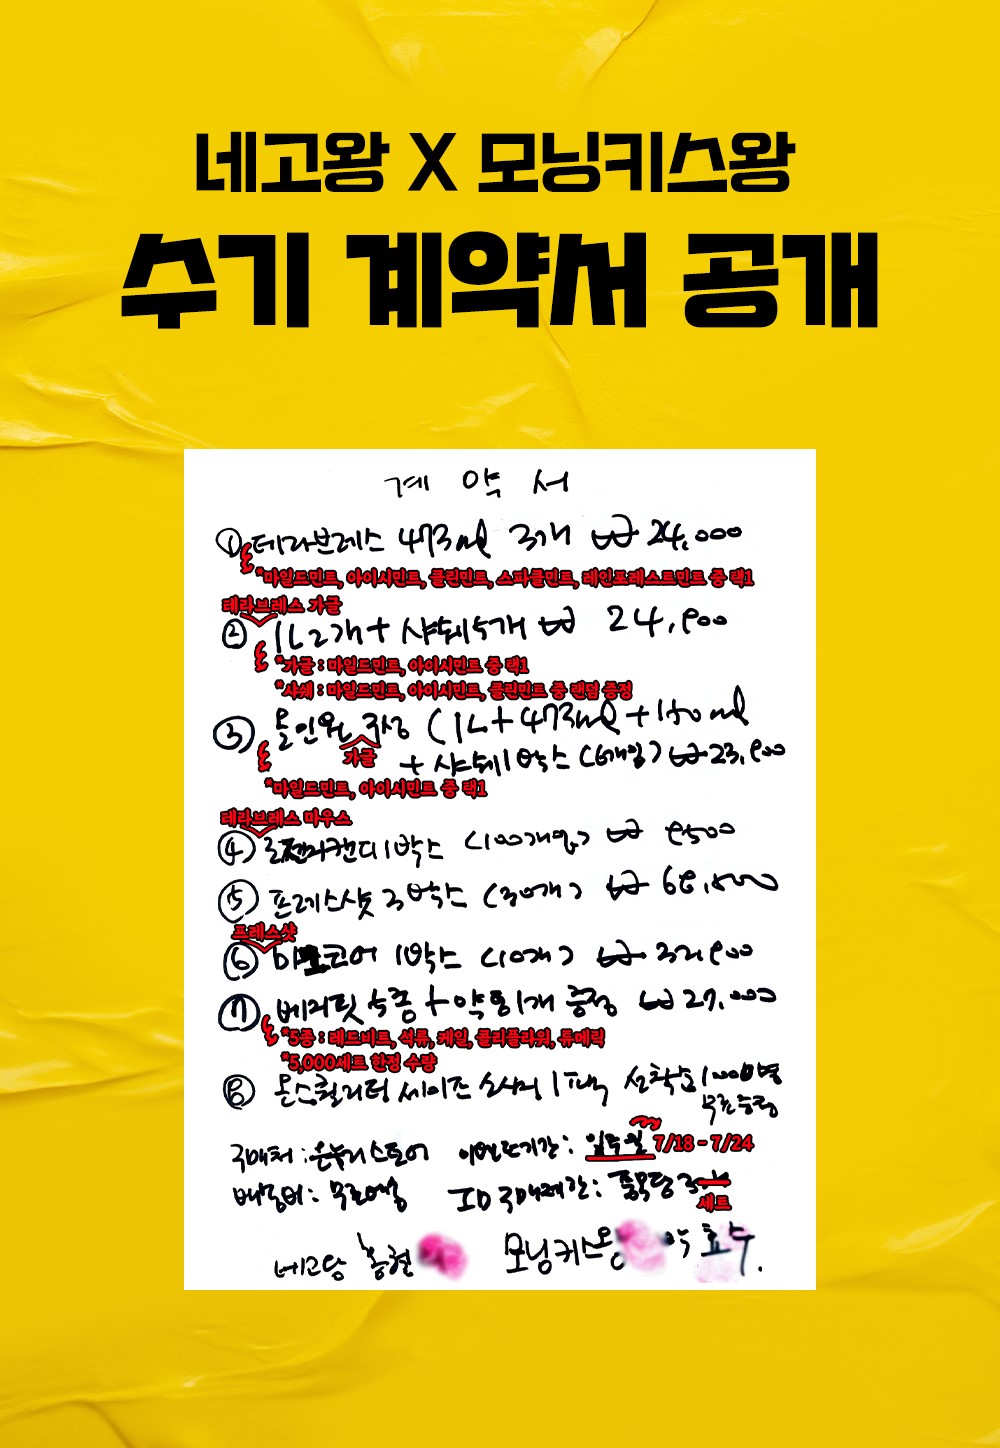 네고왕 X 모닝키스왕
수기 계약서 공개
계 약 서
① 테라브레스 473ml 3개 ₩ 24,000
*마일드민트, 아이시민트, 클린민트, 스파클민트, 레인포레스트민트 중 택1
테라브레스 가글
② 1L 2개 + 샤쉐 5개 ₩ 24,900
*가글 : 마일드민트, 아이시민트 중 택1
*샤쉐 : 마일드민트, 아이시민트, 클린민트 중 랜덤 증정
③ 올인원 구성 (1L + 473ml +
가글
+ 샤쉐 1박스 ( ₩ 23,900
*마일드민트, 아이시민트 중 택1
테라브레스 마우스
④ 로젠지캔디 1박스 (100개입) ₩ 9500
⑤ 프레스샷 3박스 (30개) ₩
프레스샷
⑥ 1박스 (10개) ₩ 32,900
⑦ 베지핏 5종 + 약통 1개 증정 ₩ 27,000
*5종 : 레드비트, 석류, 케일, 콜리플라워, 튜메릭
*5,000세트 한정 수량
⑧ 몬스틸러터 세이즈 1팩 선착순 1000명
무료증정
구매처 : 은누리스토어 이벤트기간 : 일주일 7/18 - 7/24
배송비 : 무료배송 ID 구매제한 : 품목당 3
세트
네고왕 홍현 모닝키스왕